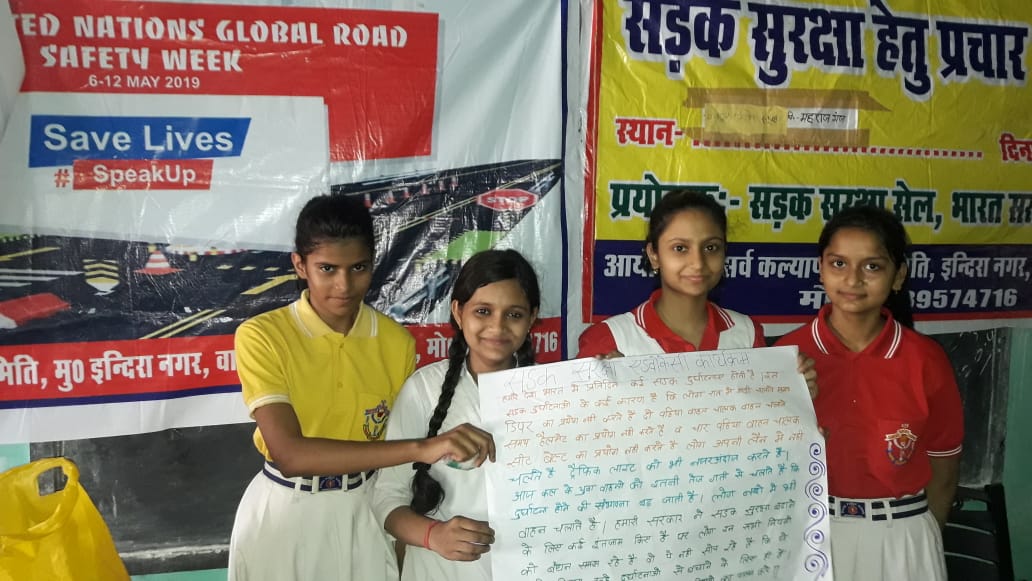 TED NATIONS GLOBAL ROAD
SAFETY WEEK
6-12 MAY 2019
Save Lives
#SpeakUp
STOP
मिति, मु0 इन्दिरा नगर, वा
716
सड़क सुरक्षा हेतु प्रचार
स्थान-
महराजगंज
दिना
सड़क सुरक्षा सेल, भारत
सर्व कल्याण
ति, इन्दिरा नगर,
9574716
सड़क सुरक्षा एडवोकेसी कार्यक्रम
हमारे देश भारत में प्रतिदिन कई सड़क दुर्घटनाएं होती है। इन
सड़क दुर्घटनाओं के कई कारण है कि लोग रात में गाड़ी चलाते समय
डिपर का प्रयोग नहीं करते है दो पहिया वाहन चालक वाहन चलाते
समय हैलमेट का प्रयोग नहीं करते है व चार पहिया वाहन चालक
सीट बेल्ट का प्रयोग नहीं करते है लोग अपनी लेन में नहीं
चलते है ट्रैफिक लाइट को भी नजरअंदाज करते है।
आज कल के युवा वाहनों को इतनी तेज गति से चलाते है कि
दुर्घटना होने की संभावना बढ़ जाती है। लोग नशे में भी
वाहन चलाते है। हमारी सरकार ने सड़क सुरक्षा बढ़ाने
के लिए कई इंतजाम किए है पर लोग इन सभी नियमों
को बंधन समझ रहे है वो ये नहीं सोच रहे है कि वो
दुर्घटनाओं से बचाने के लिए ही है।